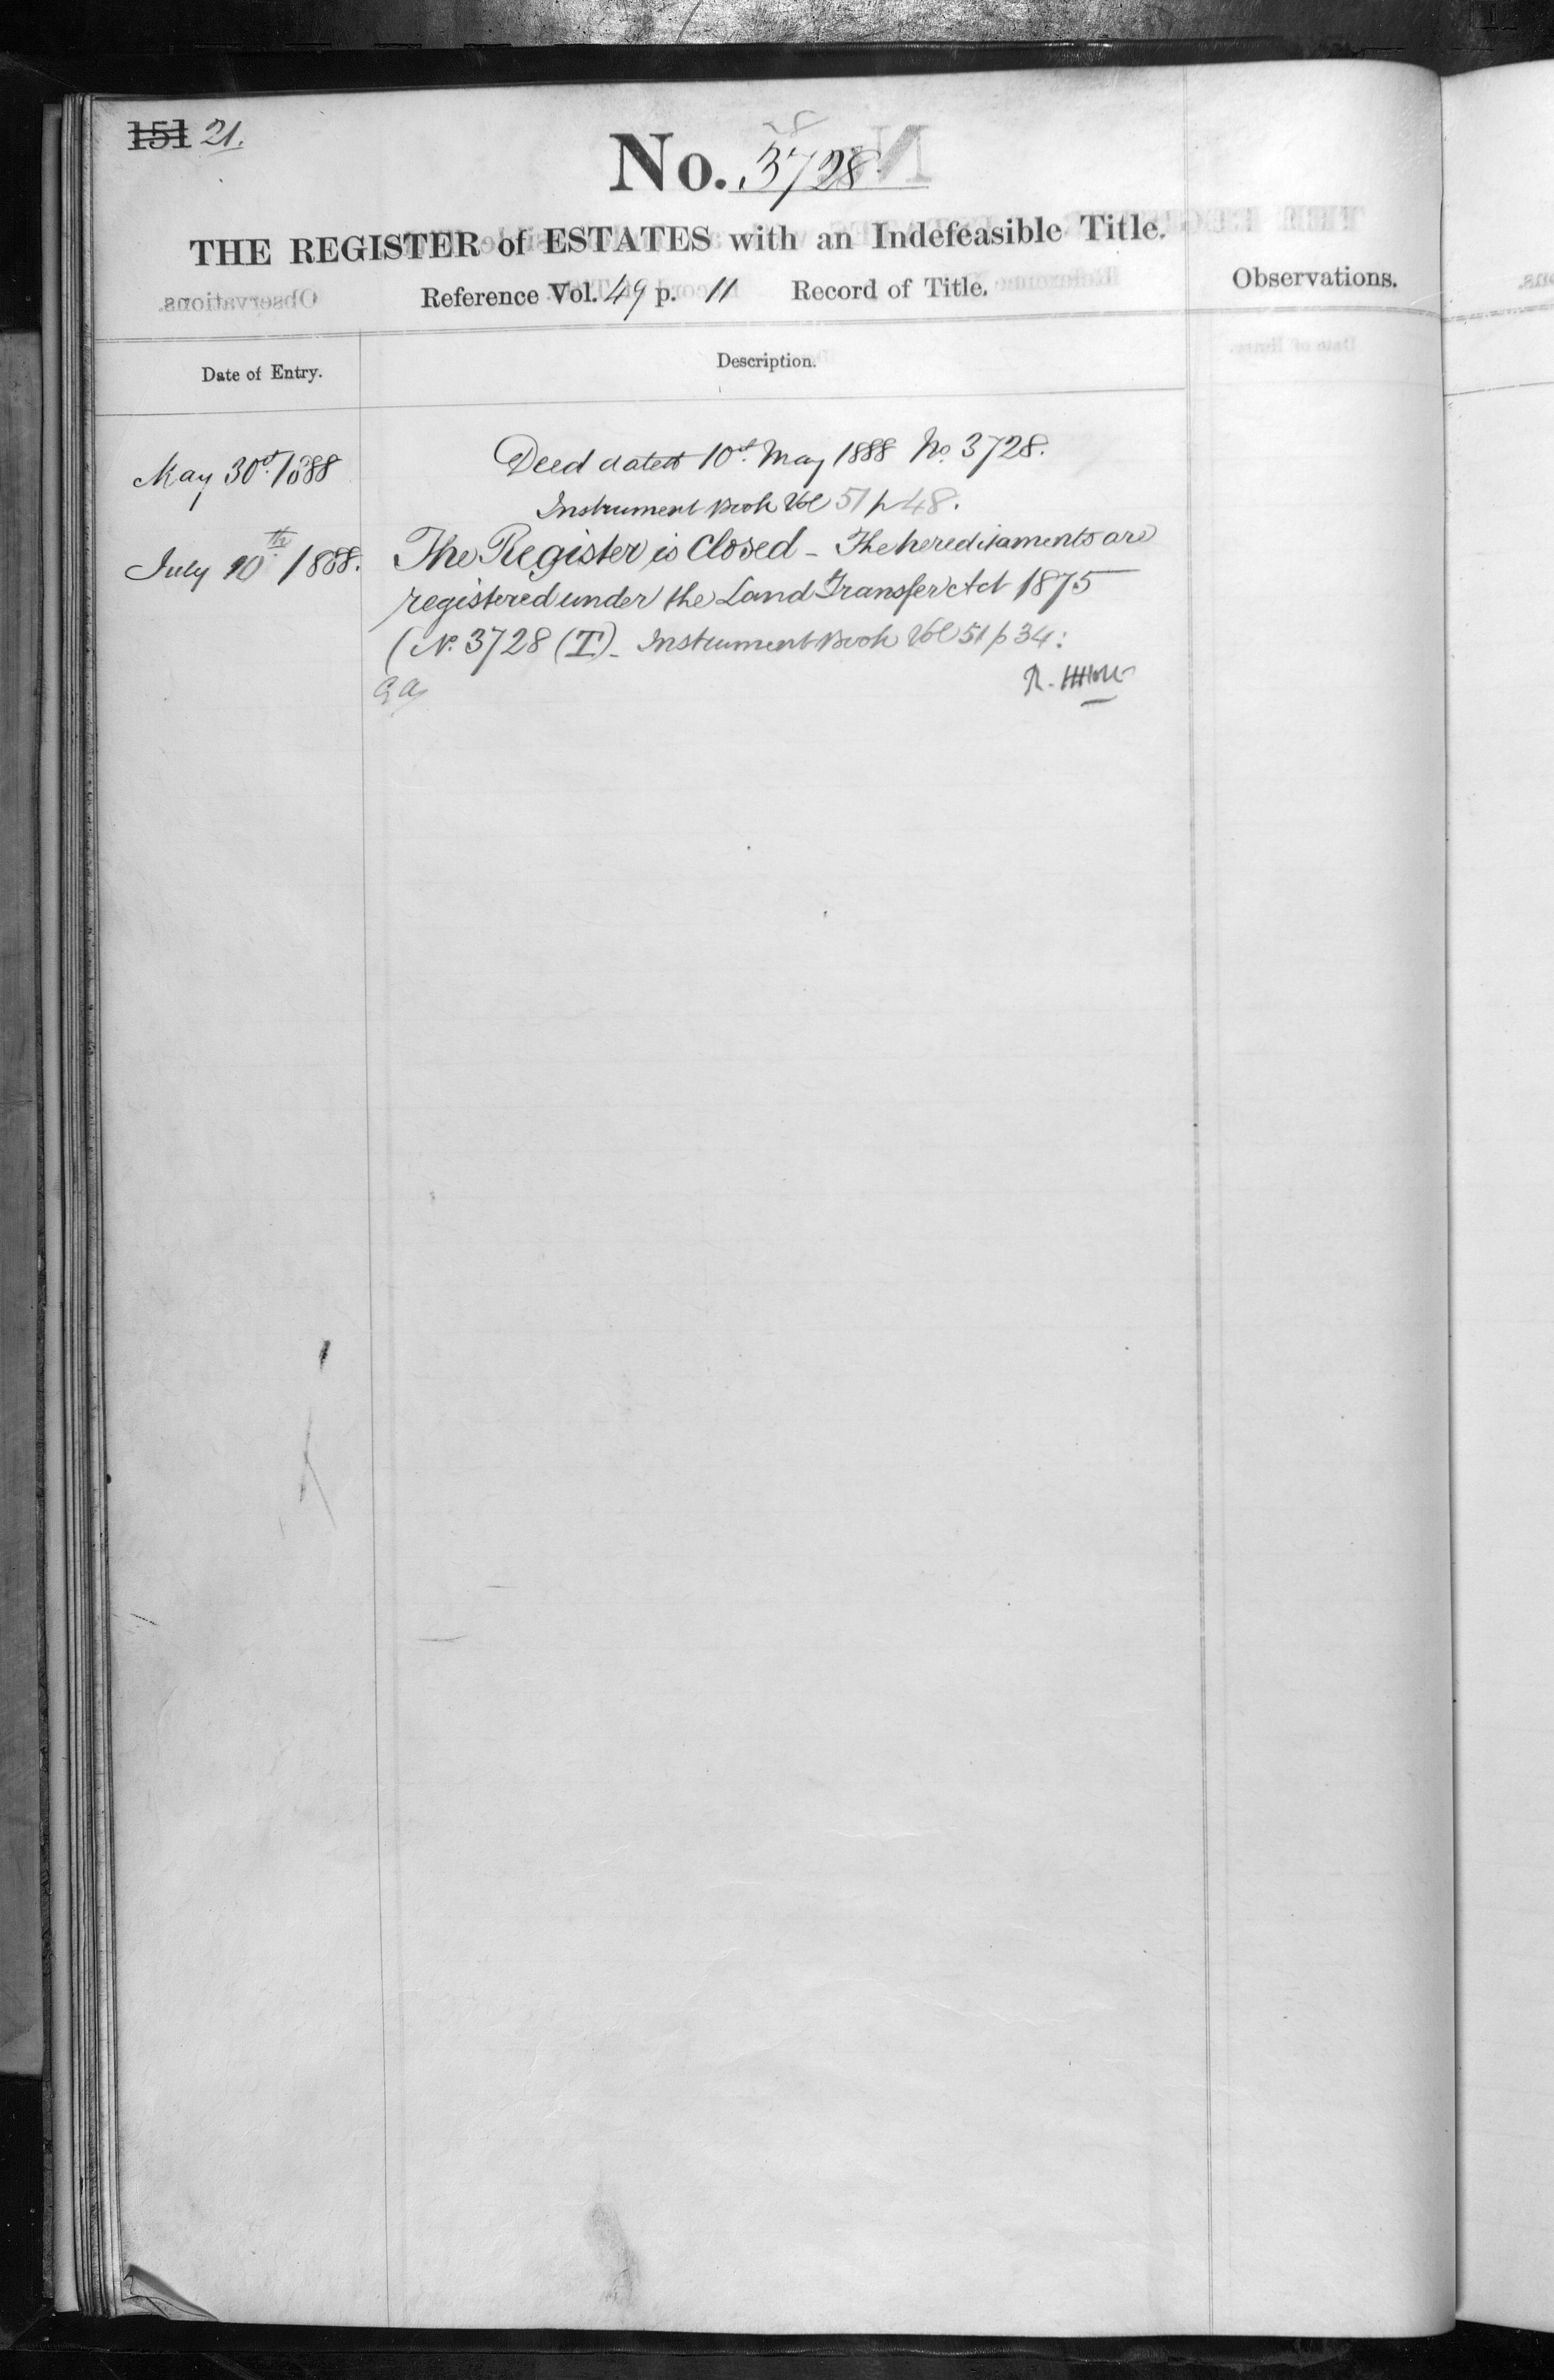 151 21.
No. 3728
THE REGISTER of ESTATES with an Indefeasible Title.
Reference Vol. 49 p. 11 Record of Title.
Observations.
Date of Entry.
Description.
May 30th. 1888
Deed dated 10th. May 1888 No. 3728.
Instrument Book Vol 51 p 48.
July 10th 1888.
The Register is Closed – The hereditaments are
registered under the Land Transfer Act 1875
(No. 3728 (T) – Instrument Book Vol 51 p 34:
R.